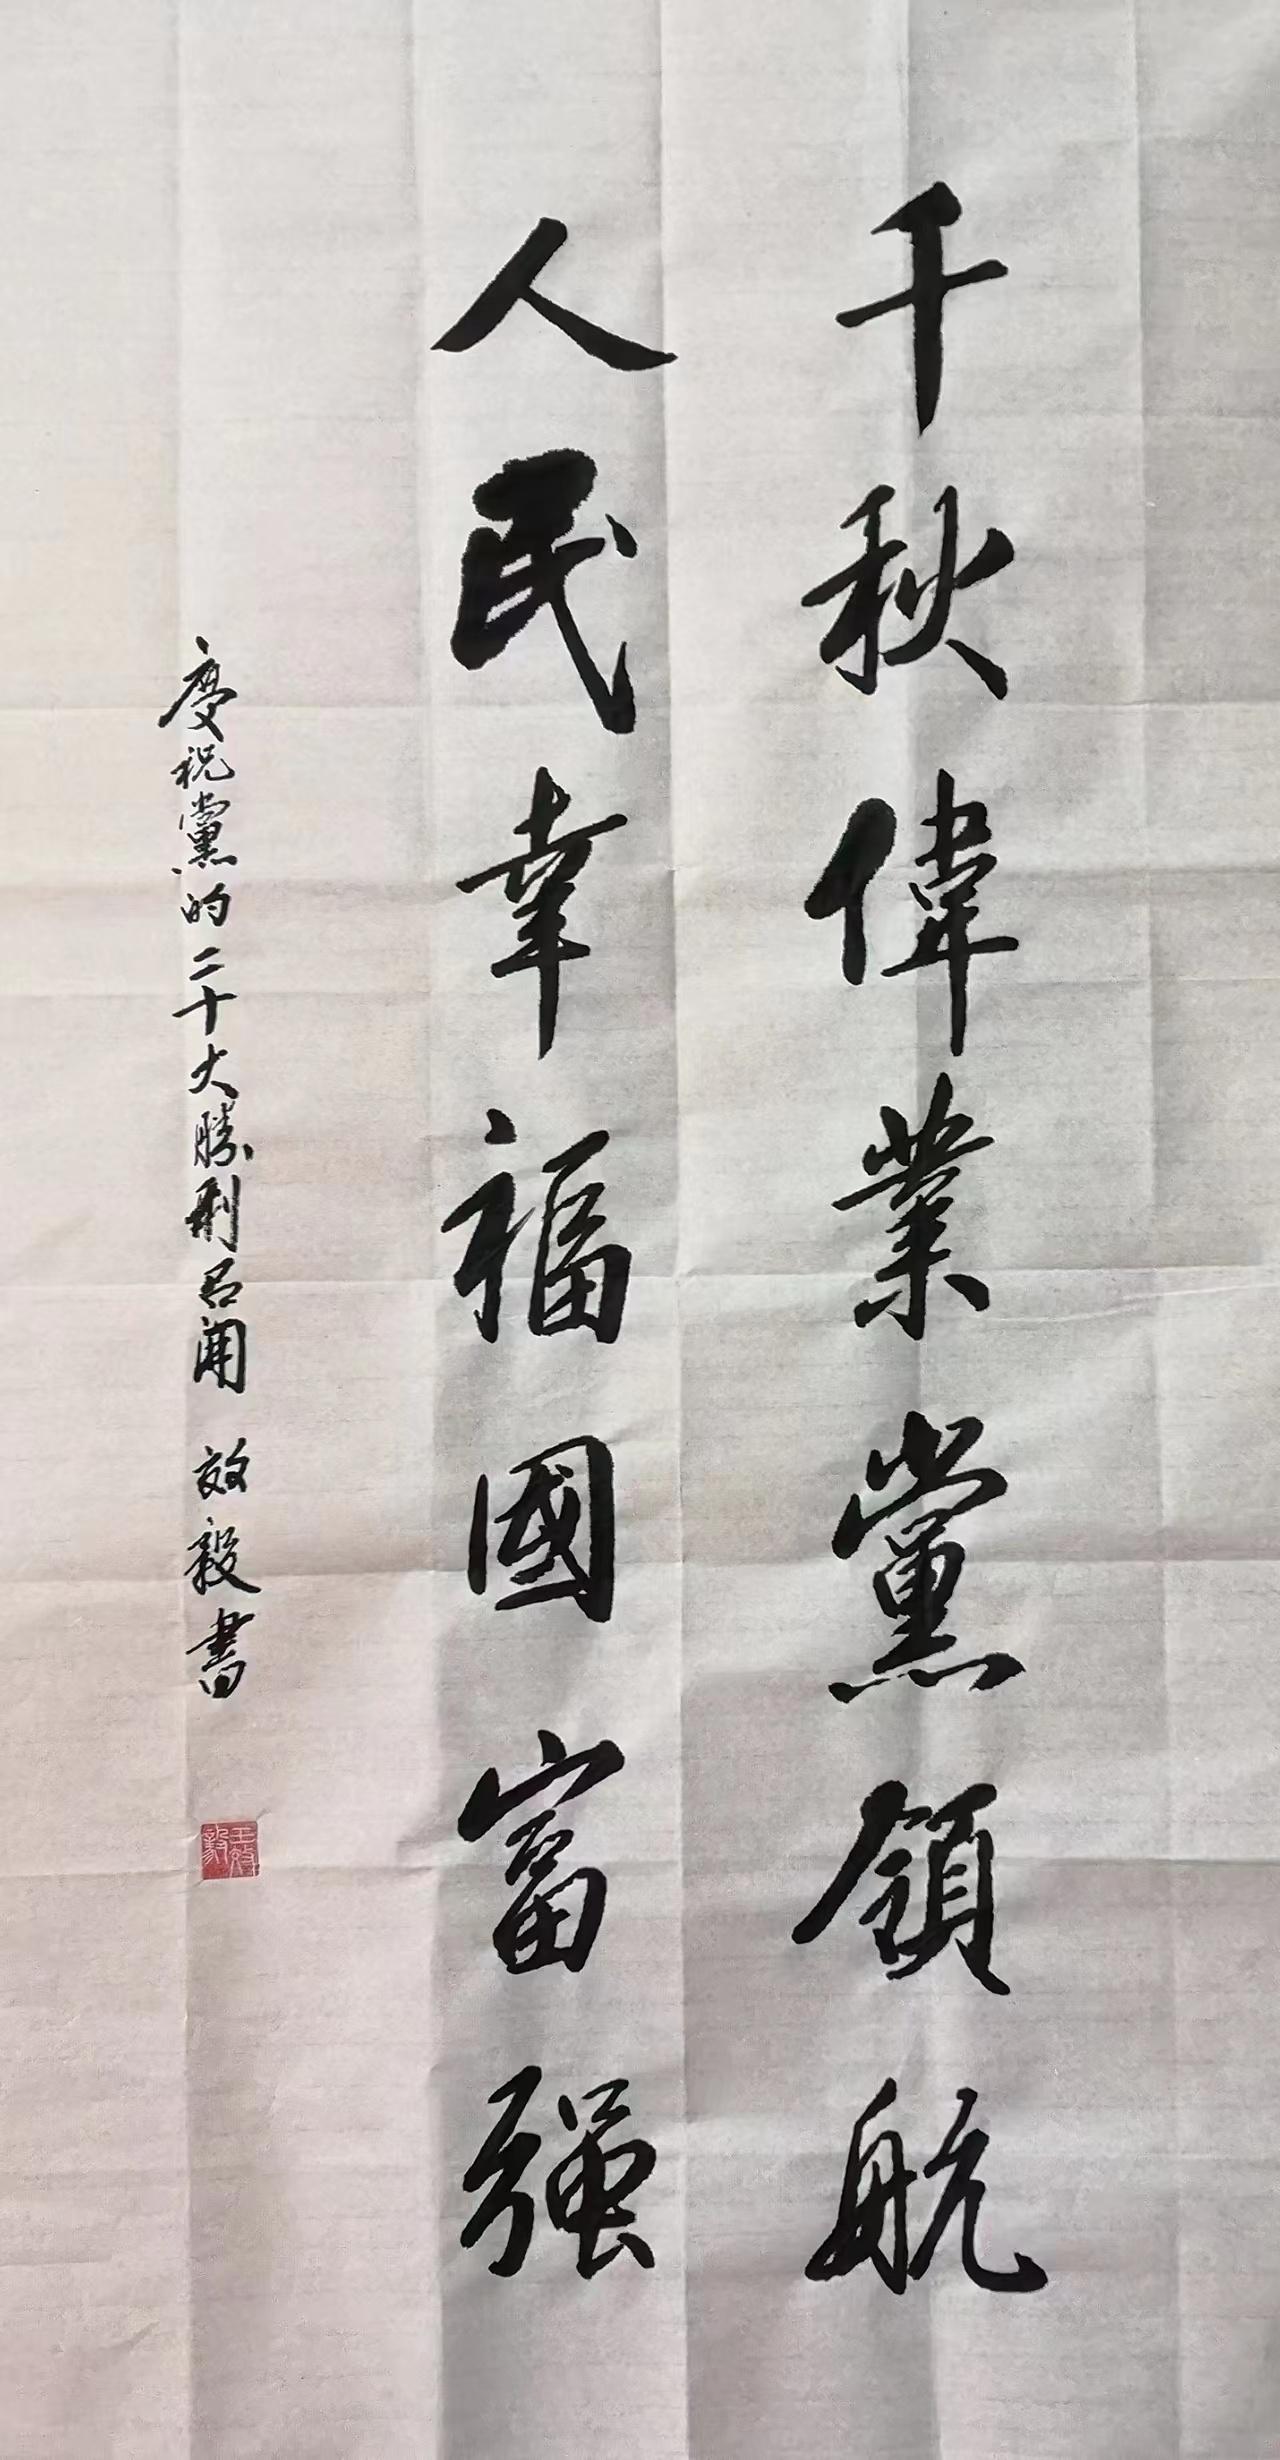 千秋偉業黨領航
人民幸福國富强
慶祝黨的二十大勝利召開 效毅書
王效毅